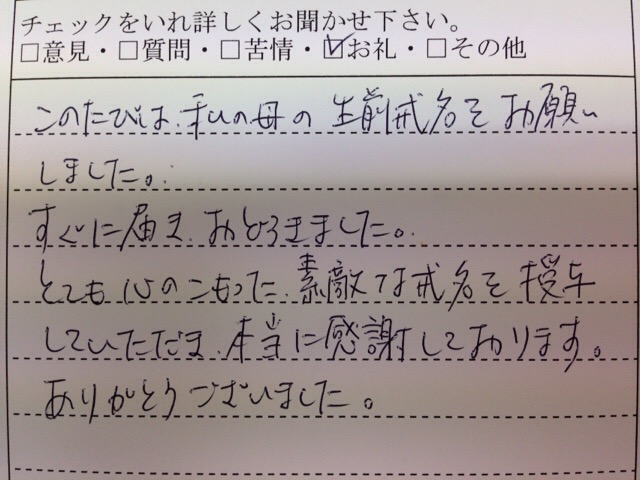 チェックをいれ詳しくお聞かせ下さい。
□意見・□質問・□苦情・☑お礼・□その他
このたびは、私の母の生前戒名をお願い
しました。
すぐに届き、おどろきました。
とても心のこもった、素敵な戒名を授与
していただき、本当に感謝しております。
ありがとうございました。